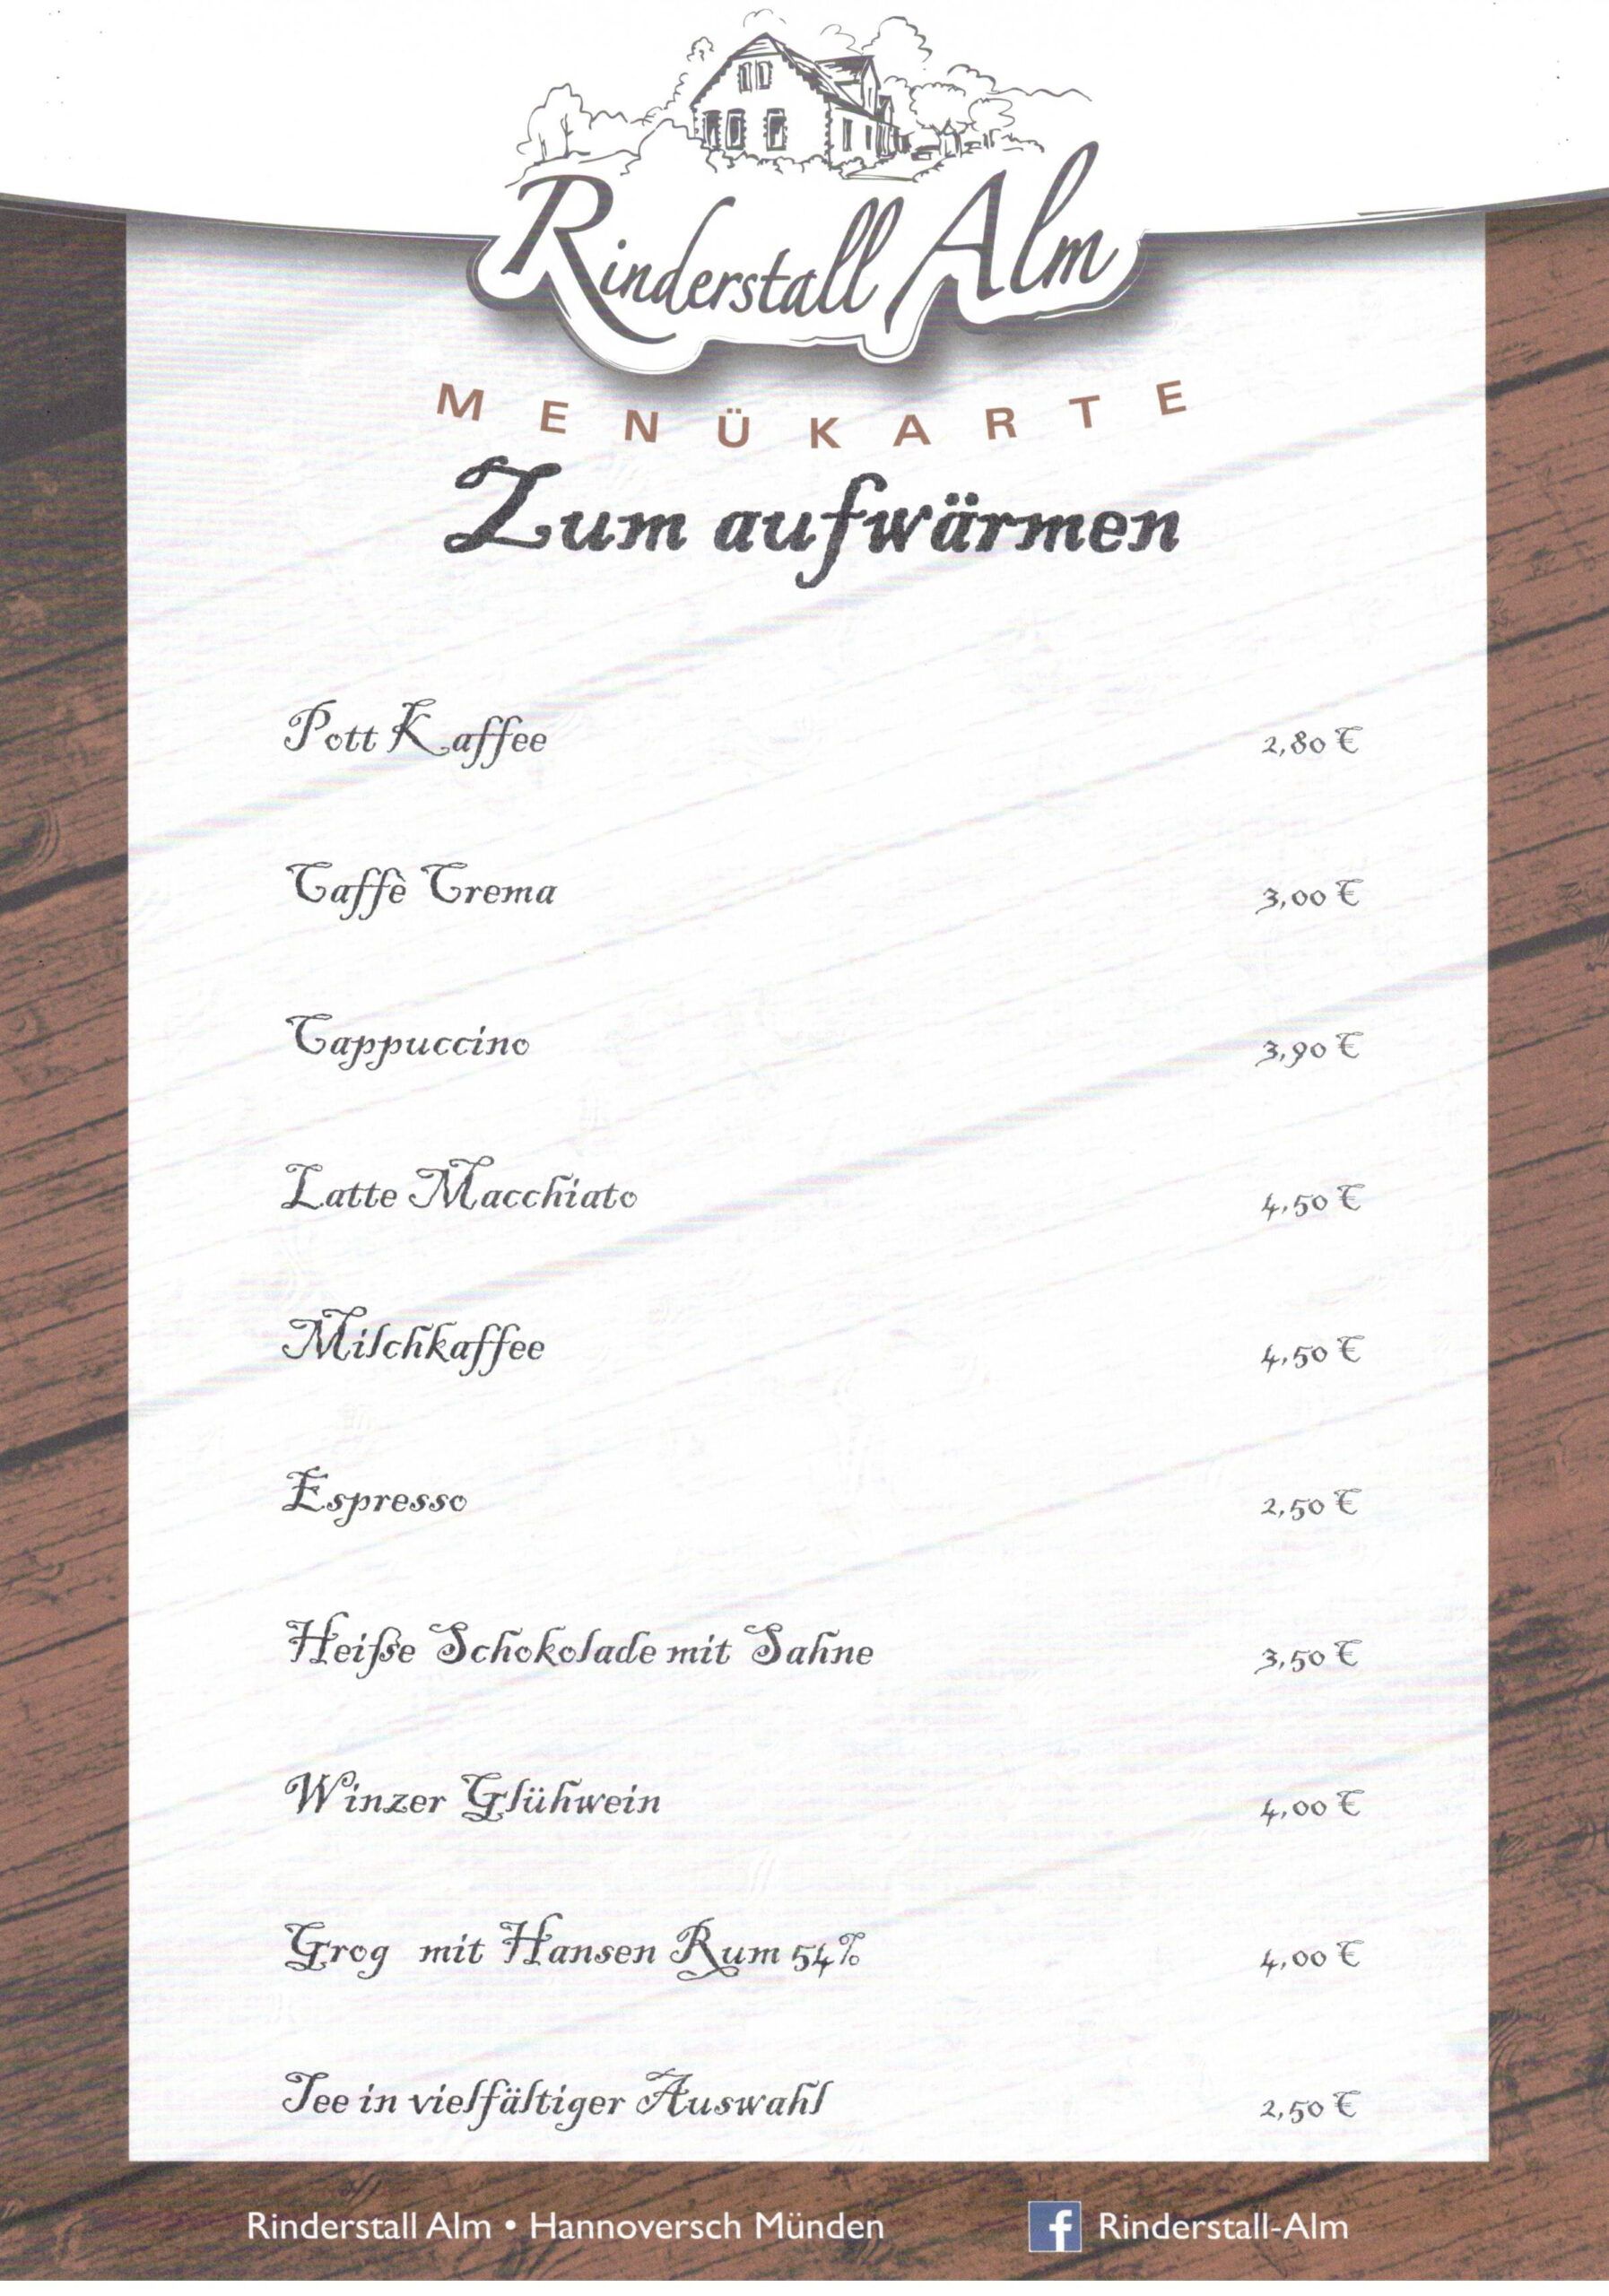 Rinderstall Alm
MENÜKARTE
Zum aufwärmen
Pott Kaffee 2,80 €
Caffè Crema 3,00 €
Cappuccino 3,90 €
Latte Macchiato 4,50 €
Milchkaffee 4,50 €
Espresso 2,50 €
Heiße Schokolade mit Sahne 3,50 €
Winzer Glühwein 4,00 €
Grog mit Hansen Rum 54% 4,00 €
Tee in vielfältiger Auswahl 2,50 €
Rinderstall Alm • Hannoversch Münden f Rinderstall-Alm